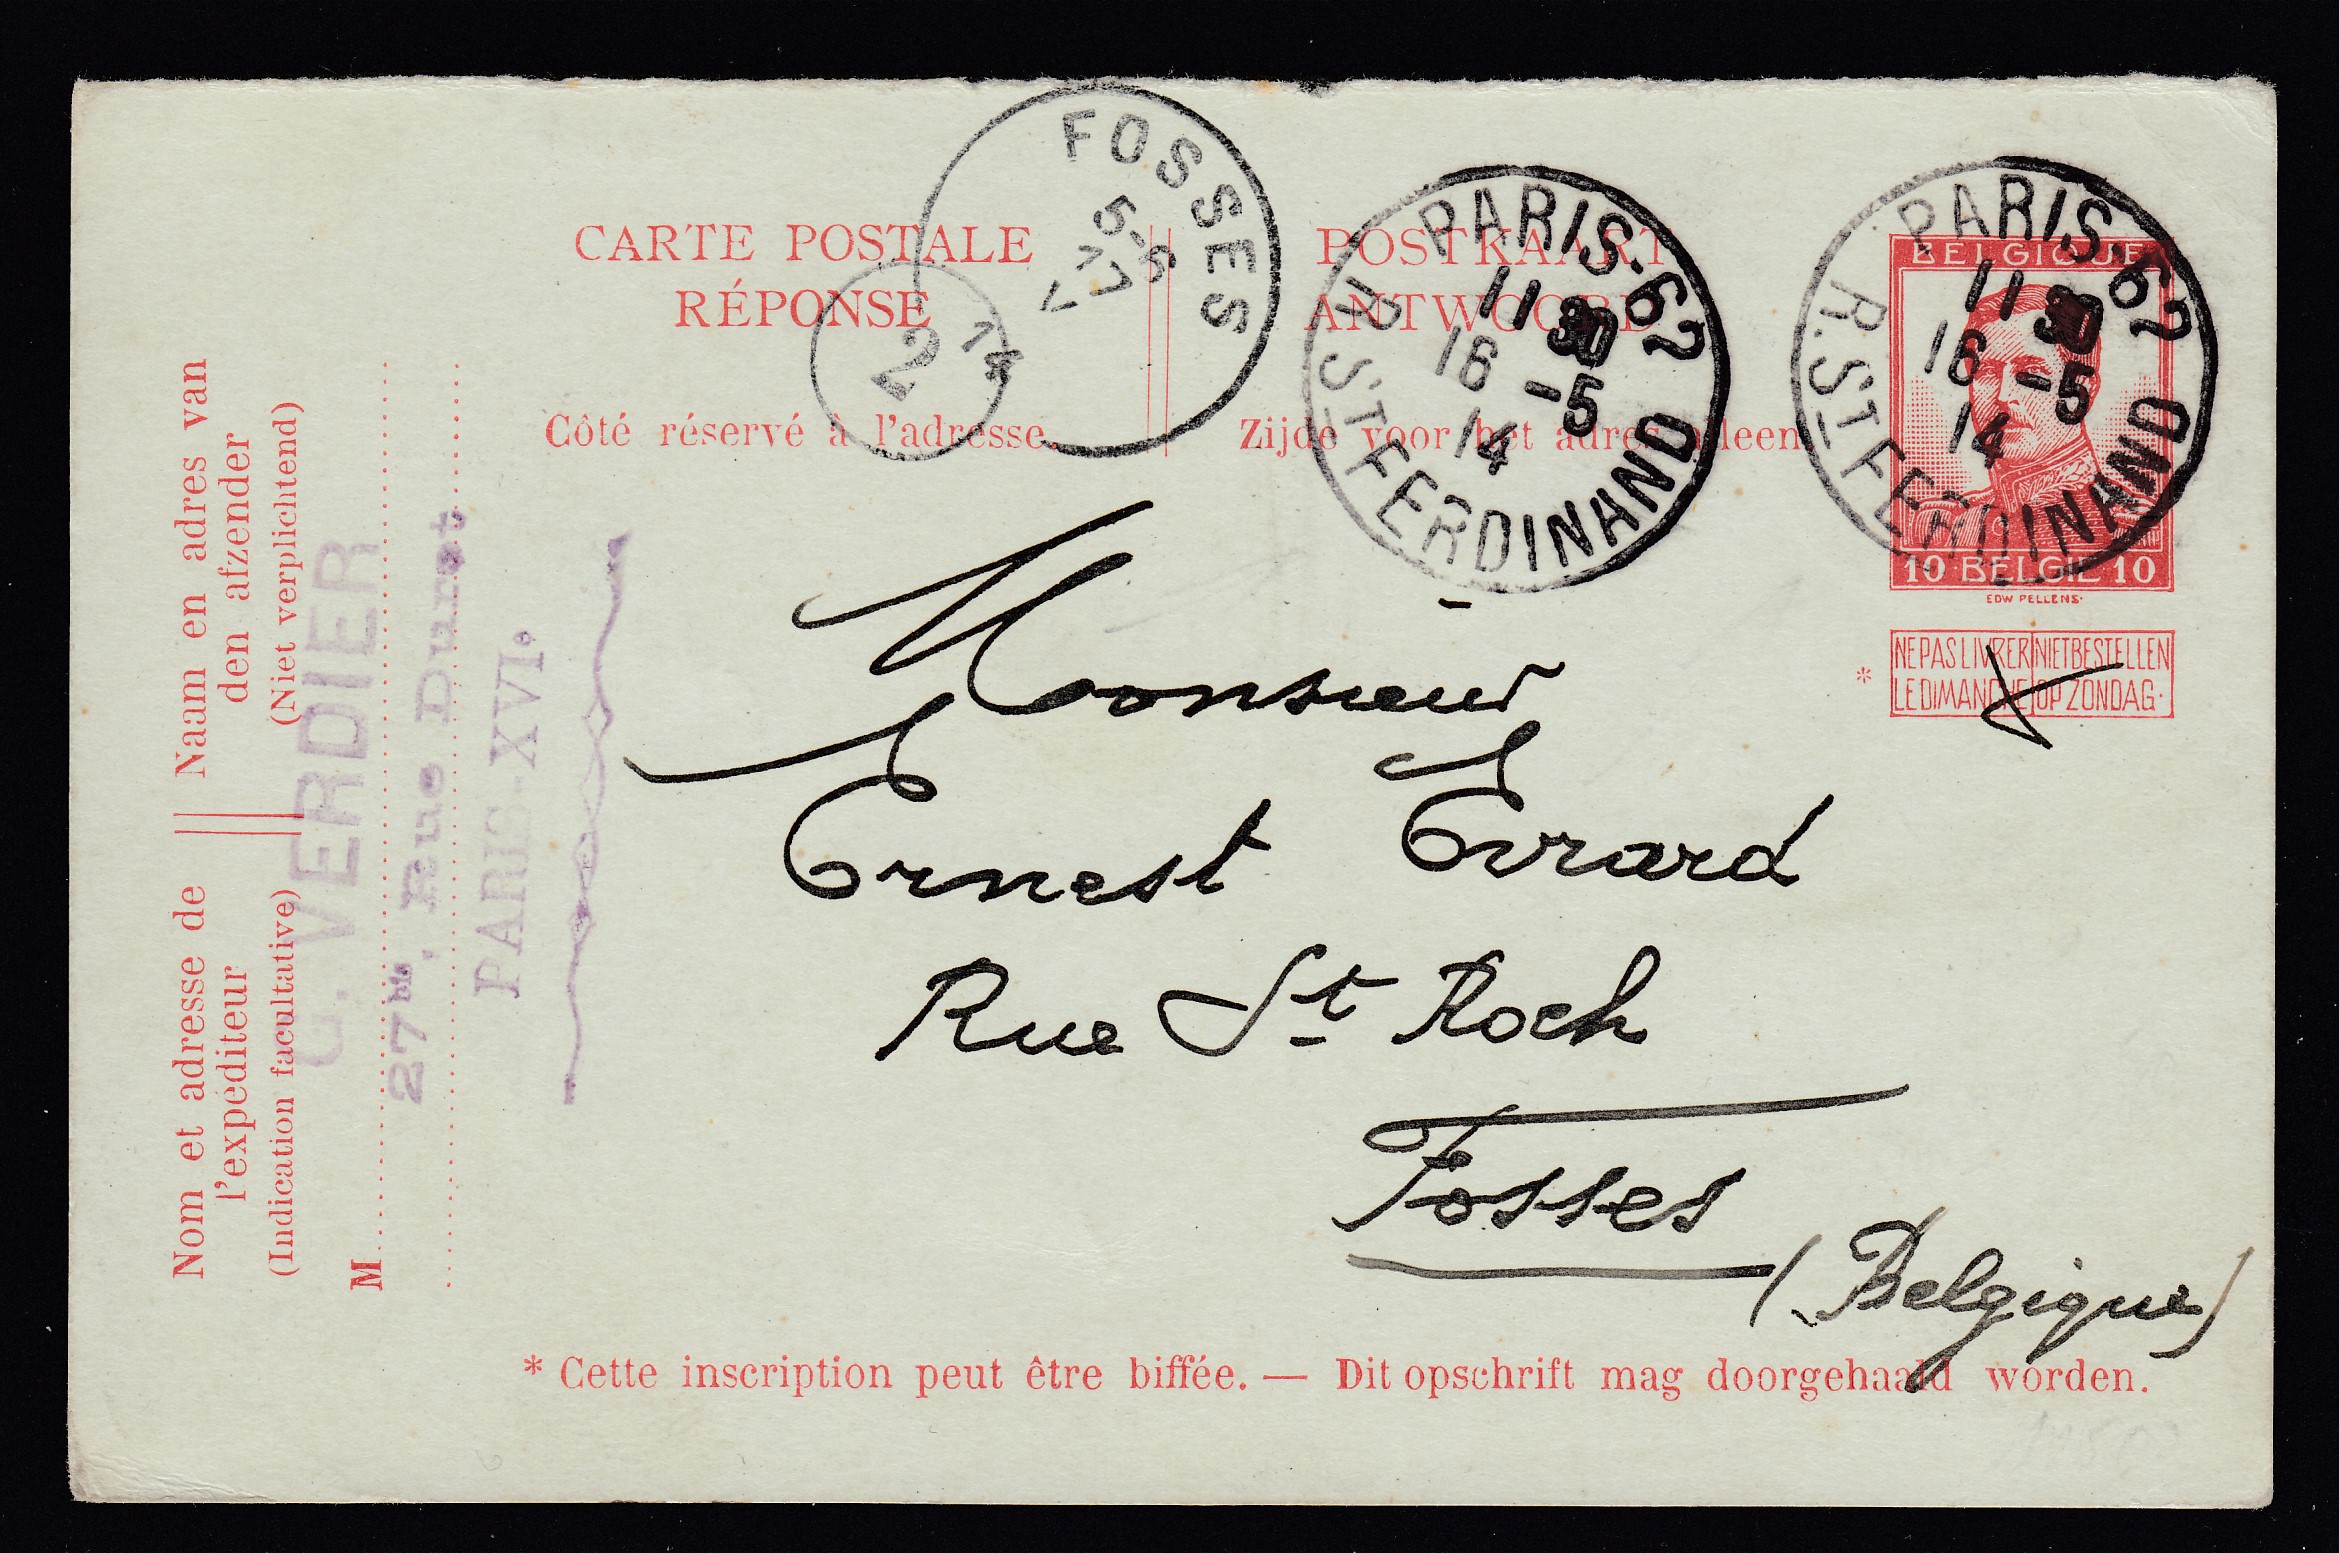 CARTE POSTALE
RÉPONSE
Côté réservé à l'adresse.
POSTKAART
ANTWOORD
Zijde voor het adres alleen.
FOSSES
5-5
17
V
14
2
PARIS·62
11 30
16 -5
14
R. ST FERDINAND
PARIS·62
11 30
16 -5
14
R. ST FERDINAND
BELGIQUE
10 BELGIË 10
EDW PELLENS·
* NE PAS LIVRER NIET BESTELLEN
LE DIMANCHE OP ZONDAG·
Naam en adres van
den afzender
(Niet verplichtend)
Nom et adresse de
l'expéditeur
(Indication facultative)
M
VERDIER
27 bis, Rue Duret
PARIS-XVIe
Monsieur
Ernest Evrard
Rue St Roch
Fosses
(Belgique)
* Cette inscription peut être biffée. — Dit opschrift mag doorgehaald worden.